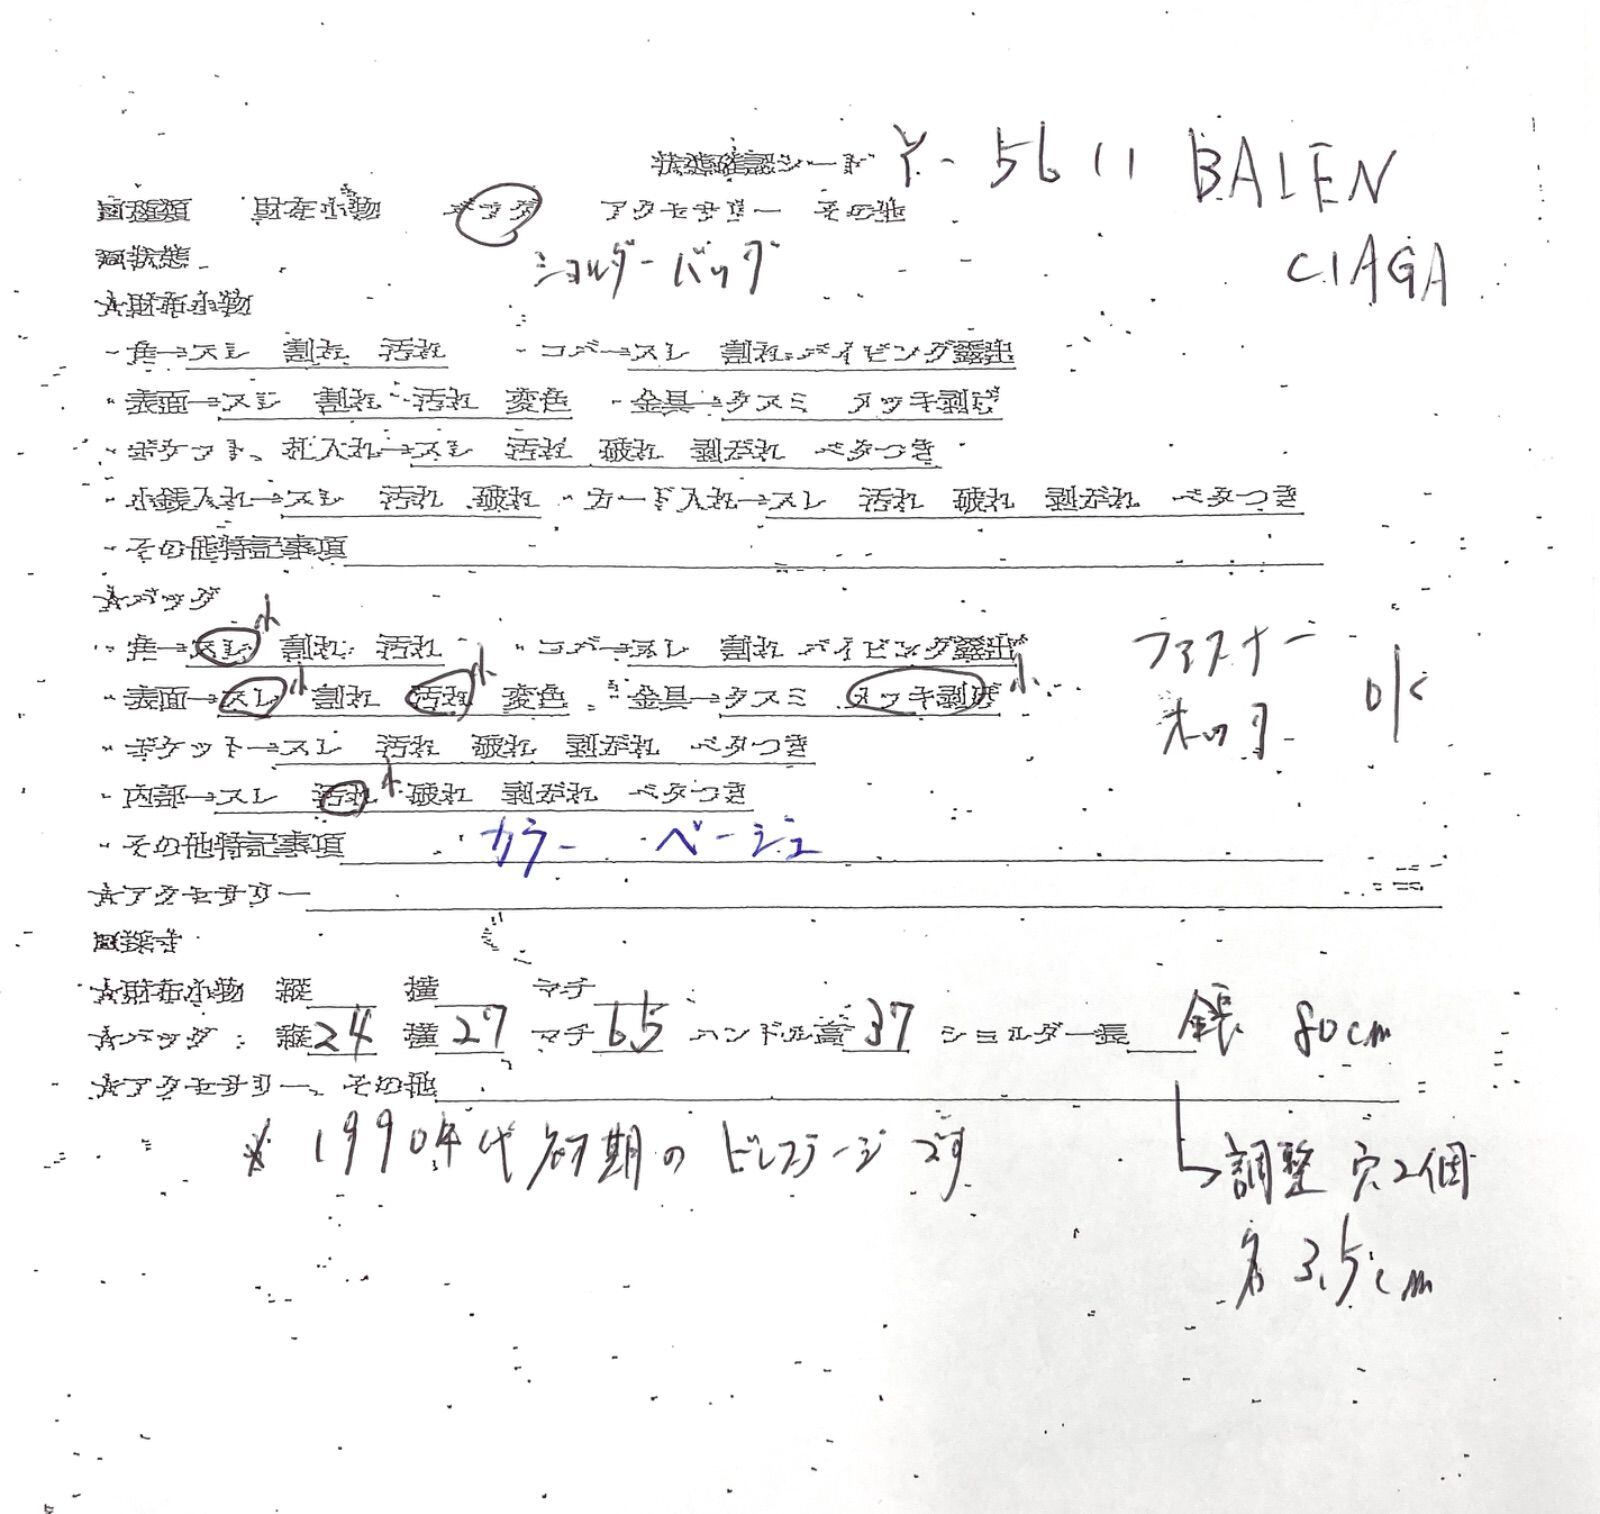 状態確認シート Y-5611 BALEN
CIAGA
□種類 財布小物 バッグ アクセサリー その他
□状態 ショルダーバッグ
☆財布小物
・角→スレ 割れ 汚れ ・コバ→スレ 割れ パイピング露出
・表面→スレ 割れ 汚れ 変色 ・金具→クスミ メッキ剥げ
・ポケット、札入れ→スレ 汚れ 破れ 剥がれ ベタつき
・小銭入れ→スレ 汚れ 破れ ・カード入れ→スレ 汚れ 破れ 剥がれ ベタつき
・その他特記事項
☆バッグ
・角→スレ小 割れ 汚れ ・コバ→スレ 割れ パイピング露出
・表面→スレ小 割れ 汚れ小 変色 ・金具→クスミ メッキ剥げ小
ファスナー
ホック OK
・ポケット→スレ 汚れ 破れ 剥がれ ベタつき
・内部→スレ 汚れ小 破れ 剥がれ ベタつき
・その他特記事項 カラー ベージュ
☆アクセサリー
□採寸
☆財布小物 縦 横 マチ
☆バッグ 縦24 横27 マチ6.5 ハンドル高37 ショルダー長 全長 80cm
☆アクセサリー、その他
※1990年代初期のビンテージです
調整穴2個
3.5cm